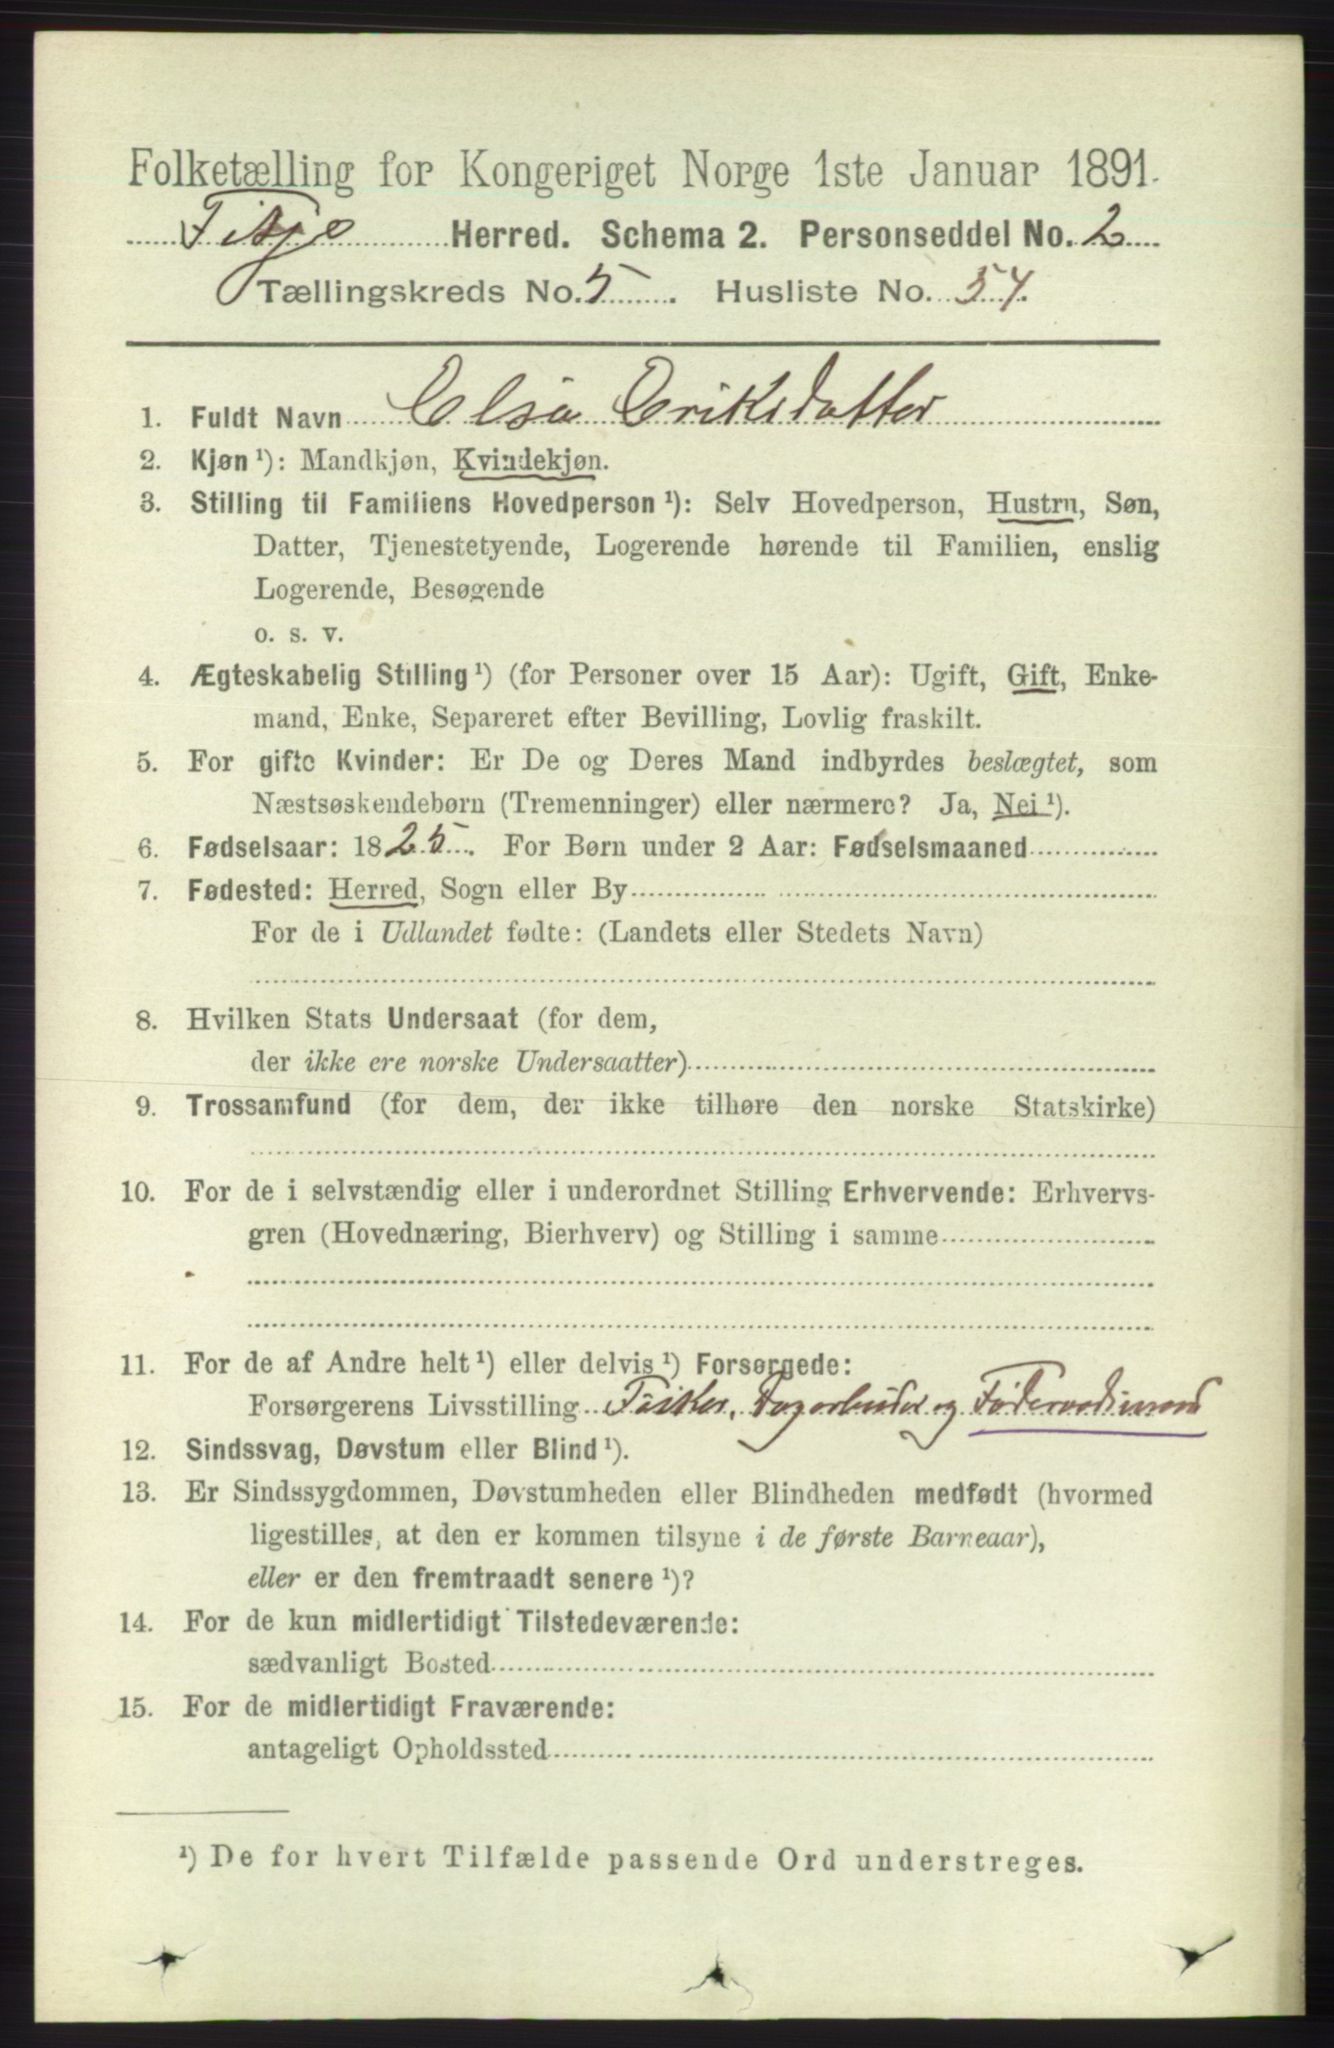 Folketælling for Kongeriget Norge 1ste Januar 1891.
Fitje Herred. Schema 2. Personseddel No. 2
Tællingskreds No. 5. Husliste No. 54.
1. Fuldt Navn Elsa Eriksdatter
2. Kjøn ¹): Mandkjøn, Kvindekjøn.
3. Stilling til Familiens Hovedperson ¹): Selv Hovedperson, Hustru, Søn,
Datter, Tjenestetyende, Logerende hørende til Familien, enslig
Logerende, Besøgende
o. s. v.
4. Ægteskabelig Stilling ¹) (for Personer over 15 Aar): Ugift, Gift, Enke-
mand, Enke, Separeret efter Bevilling, Lovlig fraskilt.
5. For gifte Kvinder: Er De og Deres Mand indbyrdes beslægtet, som
Næstsøskendebørn (Tremenninger) eller nærmere? Ja, Nei ¹).
6. Fødselsaar: 1825. For Børn under 2 Aar: Fødselsmaaned
7. Fødested: Herred, Sogn eller By
For de i Udlandet fødte: (Landets eller Stedets Navn)
8. Hvilken Stats Undersaat (for dem,
der ikke ere norske Undersaatter)
9. Trossamfund (for dem, der ikke tilhøre den norske Statskirke)
10. For de i selvstændig eller i underordnet Stilling Erhvervende: Erhvervs-
gren (Hovednæring, Bierhverv) og Stilling i samme
11. For de af Andre helt ¹) eller delvis ¹) Forsørgede:
Forsørgerens Livsstilling Fisker, Dagarbeider og Føderaadsmand
12. Sindssvag, Døvstum eller Blind ¹).
13. Er Sindssygdommen, Døvstumheden eller Blindheden medfødt (hvormed
ligestilles, at den er kommen tilsyne i de første Barneaar),
eller er den fremtraadt senere ¹)?
14. For de kun midlertidigt Tilstedeværende:
sædvanligt Bosted
15. For de midlertidigt Fraværende:
antageligt Opholdssted
¹) De for hvert Tilfælde passende Ord understreges.